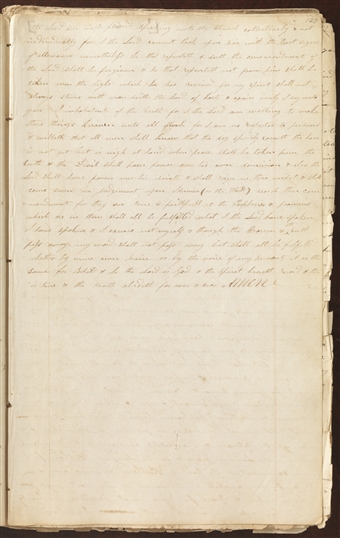 127
the Lord am well pleased speaking unto the Church collectively & not
individually for I the Lord cannot look upon sin with the least degree
of allowance nevertheless he that repenteth & doeth the commandments of
the Lord shall be forgiven & he that repenteth not from him shall be
taken even the light which he has received for my spirit shall not
always strive with man saith the Lord of hosts & again verily I say unto
you O inhabitants of the earth for I the Lord am willing to make
these things known unto all flesh for I am no respecter to persons
& willeth that all men shall know that the day speedily cometh the hour
is not yet but is nigh at hand when peace shall be taken from the
earth & the Devil shall have power over his own dominion & also the
Lord shall have power over his saints & shall reign in their midst & shall
come down in judgement upon Idumea (or the world) search these com
mandments for they are true & faithfull & the Prophecies & promises
which are in them shall all be fulfilled what I the Lord have spoken
I have spoken & I excuse not myself & though the Heaven & Earth
pass away my word shall not pass away but shall all be fulfilled
whether by mine own voice or by the voice of my servants it is the
same for behold & lo the Lord is God & the spirit beareth record & the
is true & the truth abideth for ever & ever AMEN